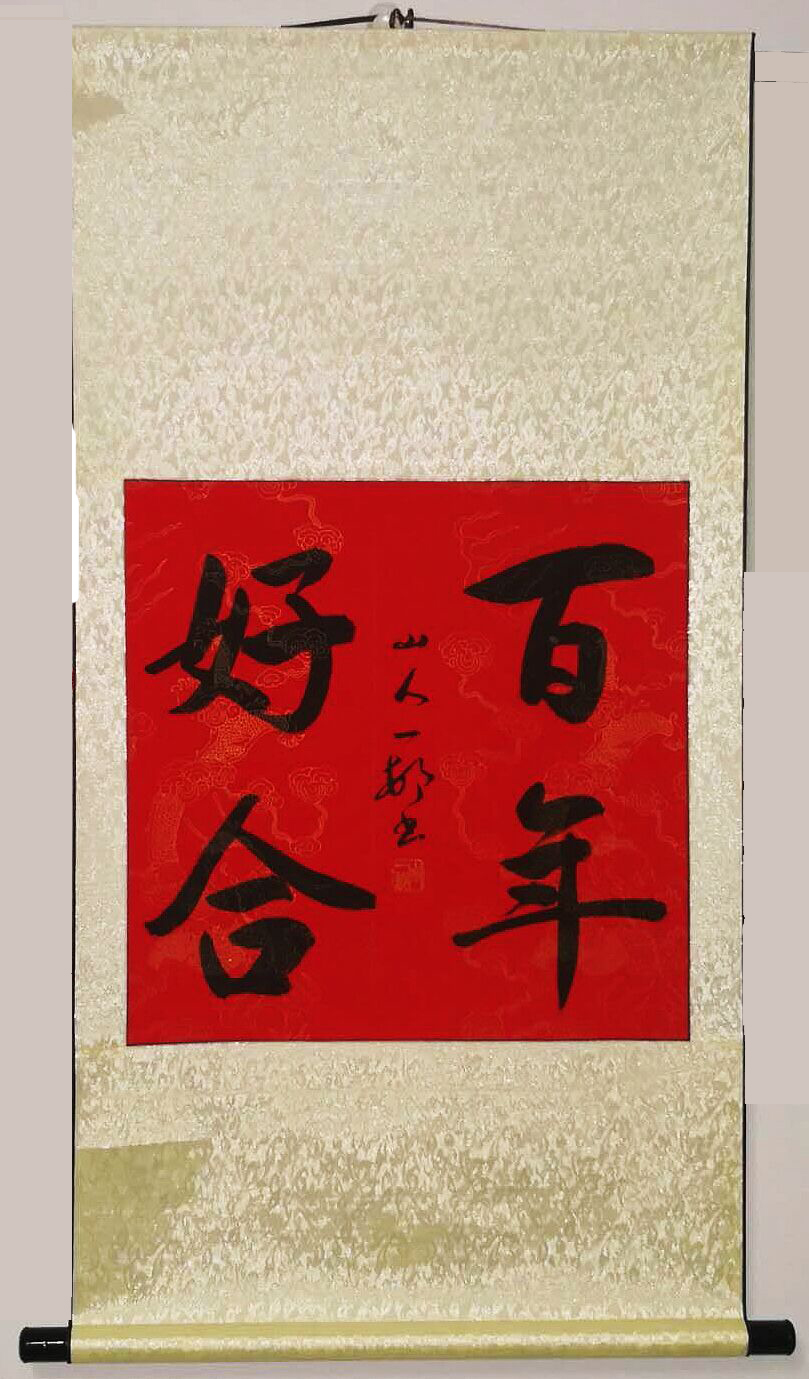 百年
好合
山人一郁书